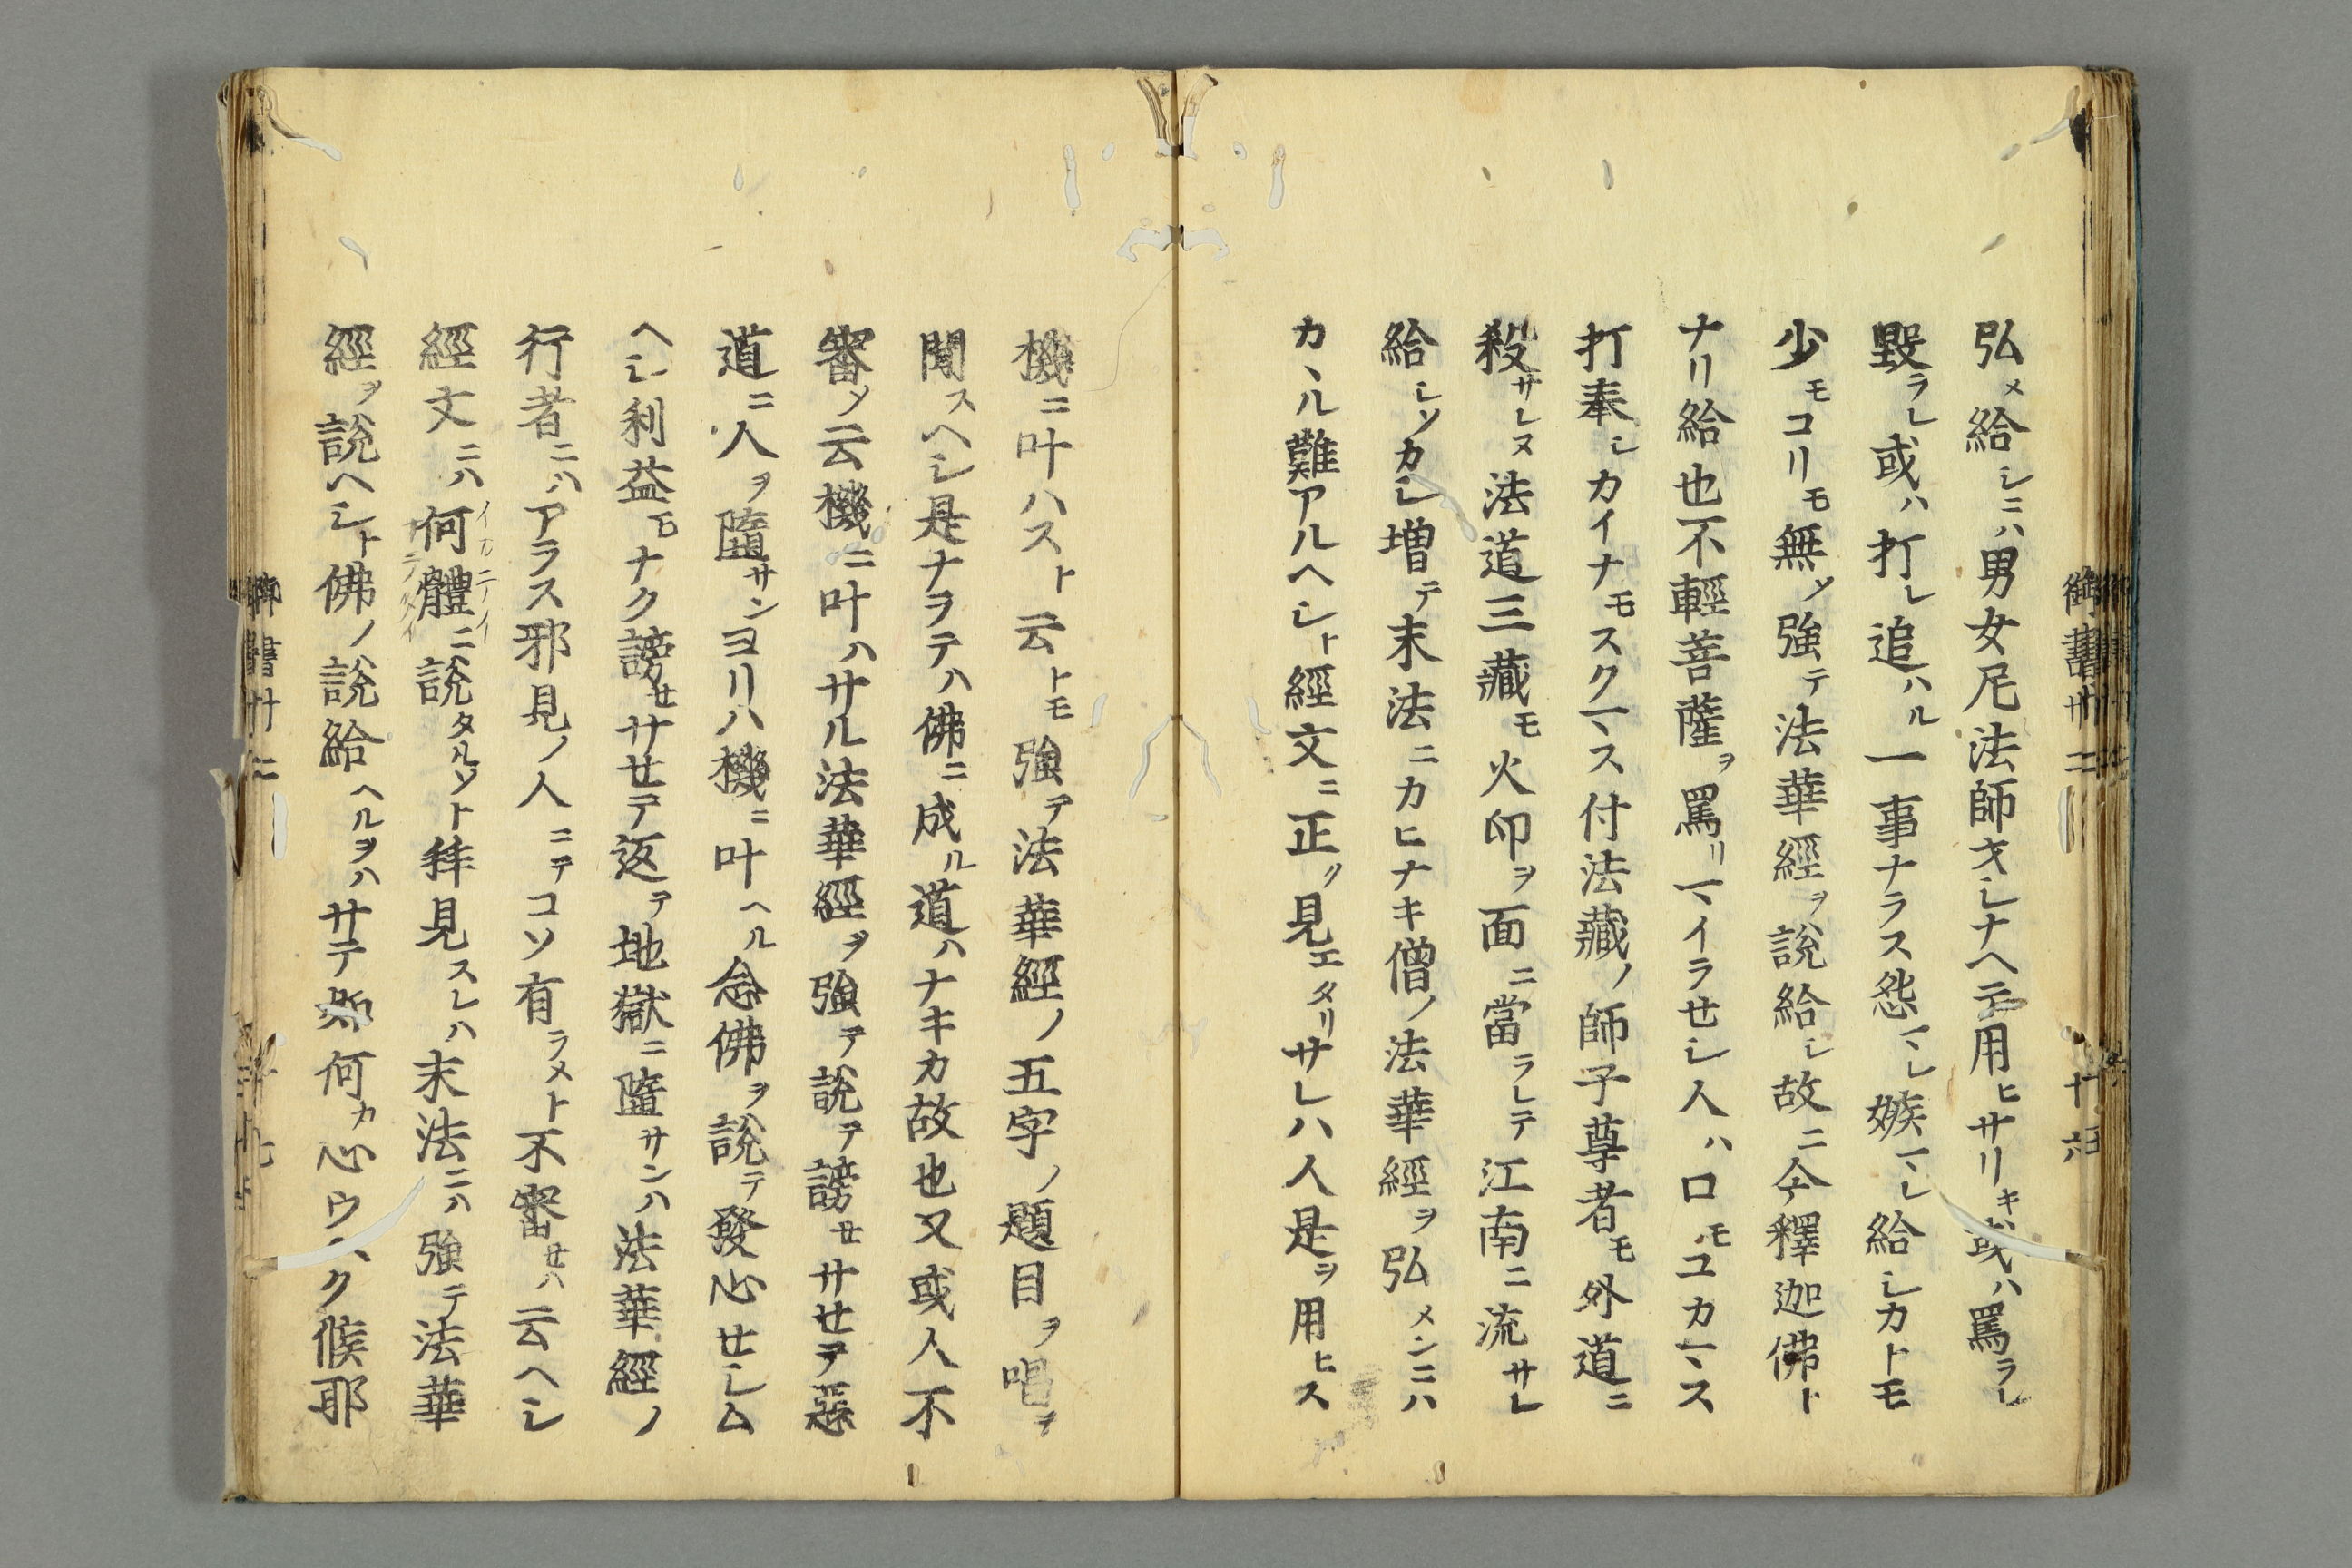 弘メ給シニハ男女尼法師ヲシナヘテ用ヒサリキ或ハ罵ラレ
毀ラレ或ハ打レ追ハル一事ナラス怨マレ嫉マレ給シカトモ
少モコリモ無ノ強テ法華經ヲ説給シ故ニ今釋迦佛ト
ナリ給也不輕菩薩ヲ罵リマイラせシ人ハ口モユカマス
打奉シカイナモスクマス付法藏ノ師子尊者モ外道ニ
殺サレヌ法道三藏モ火印ヲ面ニ當ラレテ江南ニ流サレ
給シソカシ増テ末法ニカヒナキ僧ノ法華經ヲ弘メンニハ
カヽル難アルヘシト經文ニ正ク見エタリサレハ人是ヲ用ヒス
機ニ叶ハスト云トモ強テ法華經ノ五字ノ題目ヲ唱ヲ
聞スヘシ是ナラテハ佛ニ成ル道ハナキカ故也又或人不
審ノ云機ニ叶ハサル法華經ヲ強テ説テ謗せサせテ惡
道ニ人ヲ墮サンヨリハ機ニ叶ヘル念佛ヲ説テ發心せシム
ヘシ利益モナク謗せサせテ返テ地獄ニ墮サンハ法華經ノ
行者ニハアラス邪見ノ人ニテコソ有ラメト不審せハ云ヘシ
經文ニハ何體ニ説タルソト拜見スレハ末法ニハ強テ法華
經ヲ説ヘシト佛ノ説給ヘルヲハサテ如何カ心ウヘク候耶
御書廿二
十六
御書廿二